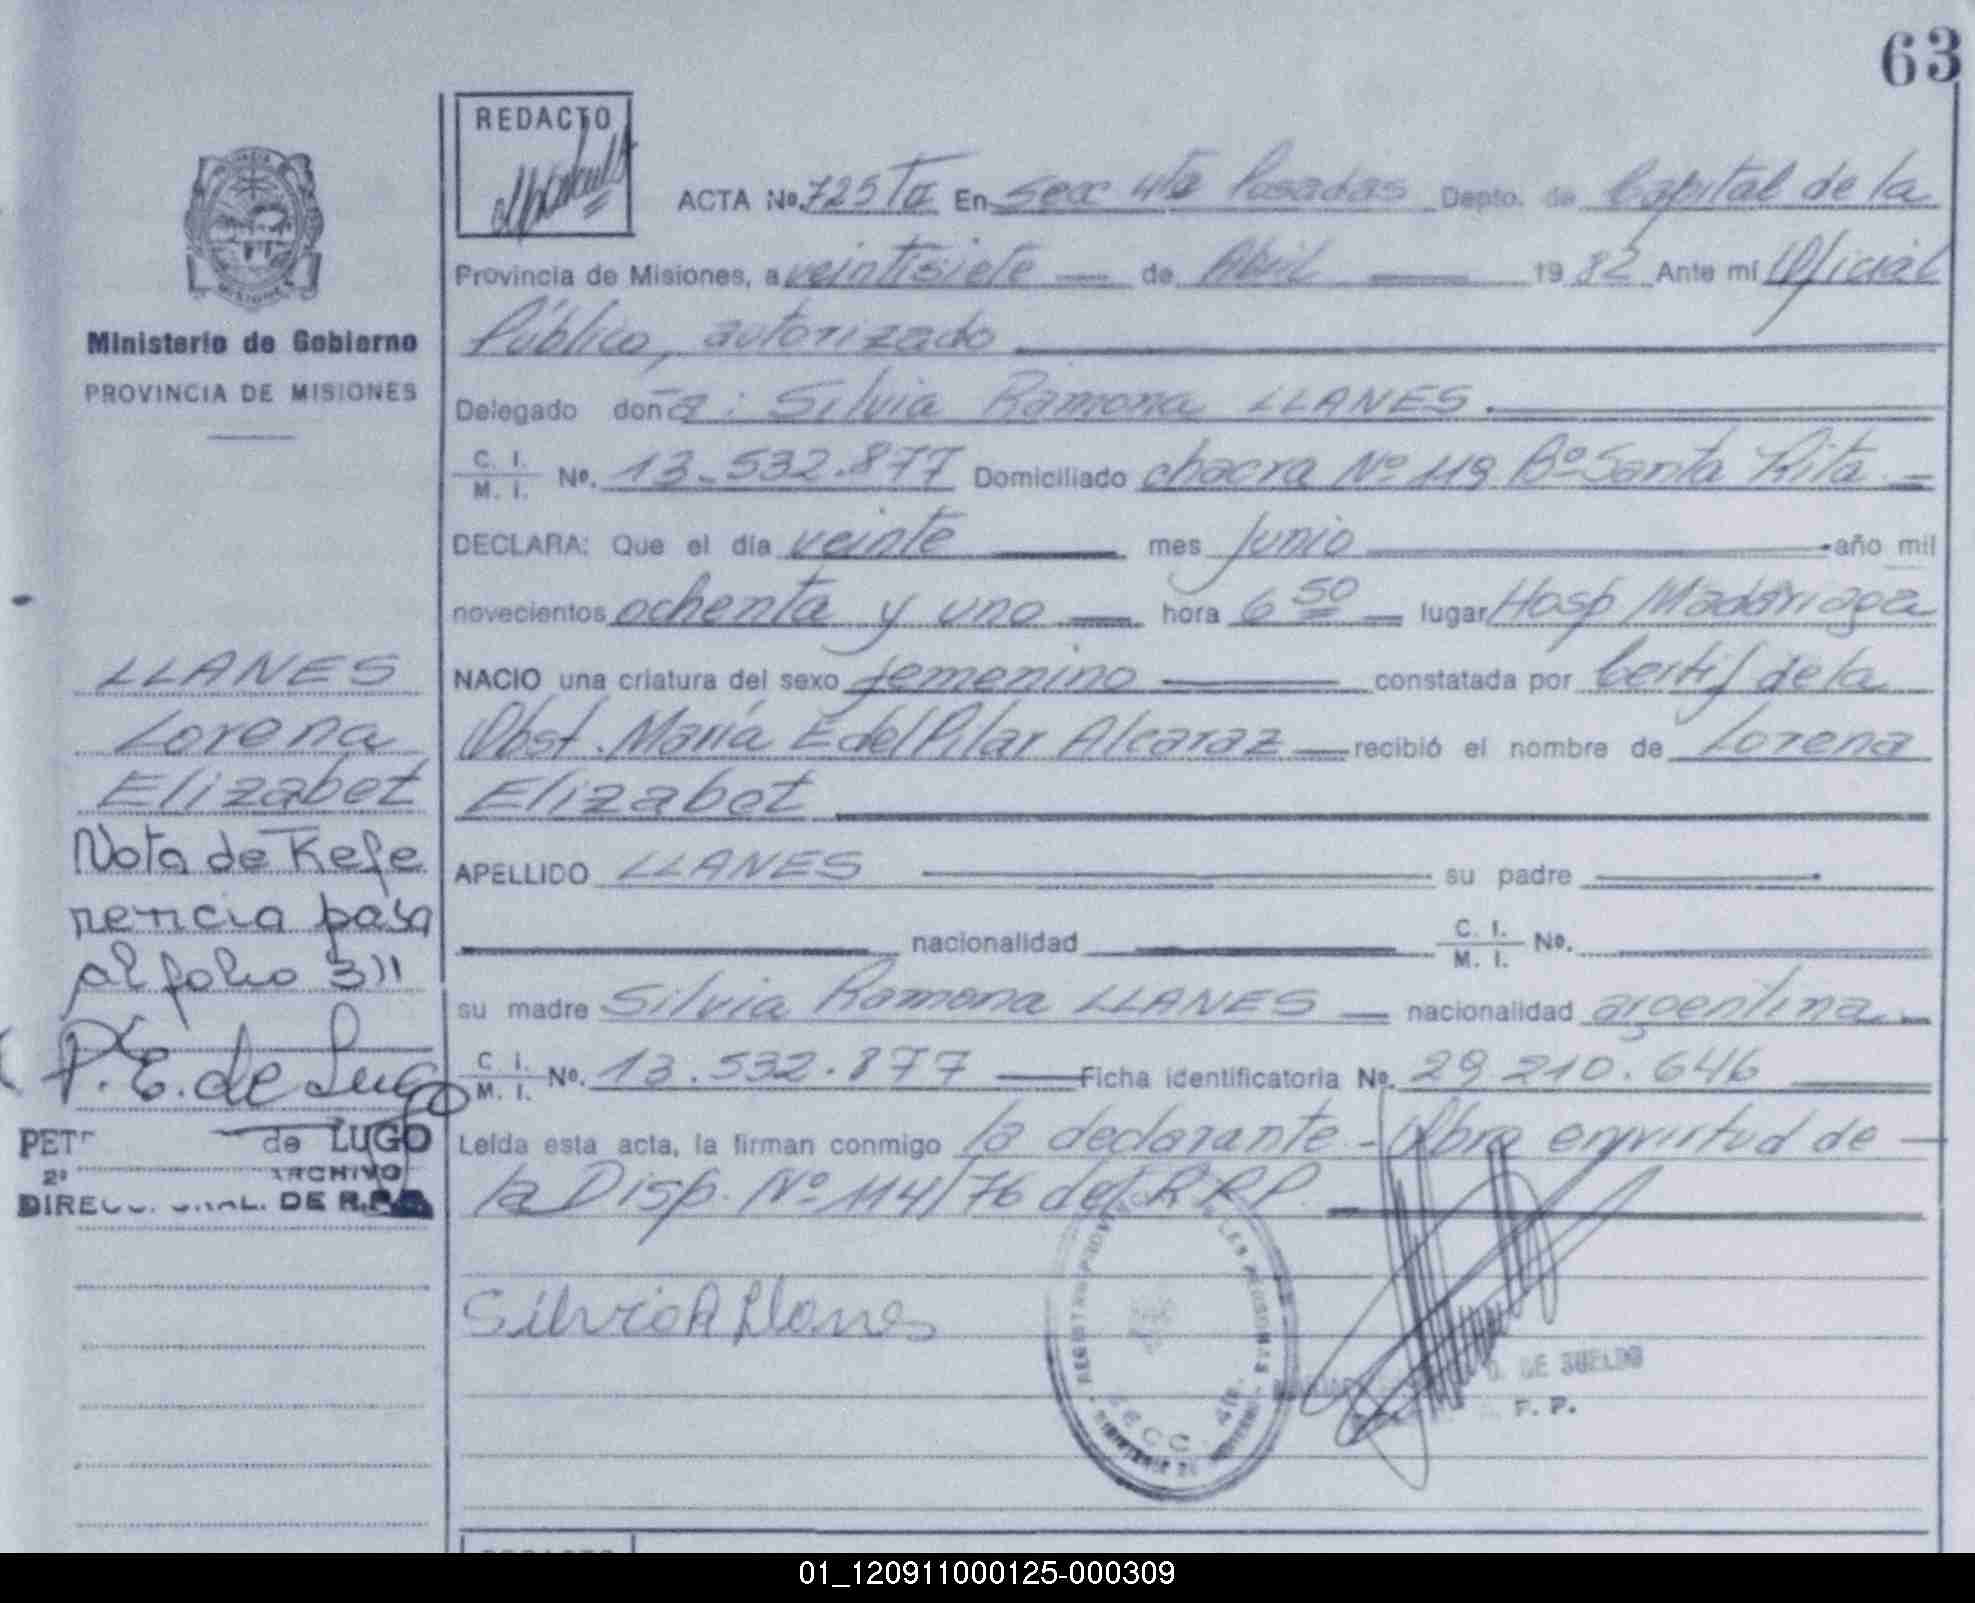 63
REDACTO
ACTA Nº 725 Ta En Secc 4ta Posadas Depto. de Capital de la
Provincia de Misiones, a veintisiete de Abril 1982 Ante mí Oficial
Público, autorizado
Delegado doña: Silvia Ramona LLANES.
C. I. / M. I. Nº. 13.532.877 Domiciliado chacra Nº 119 Bº Santa Rita
DECLARA: Que el día veinte mes Junio año mil
novecientos ochenta y uno hora 6 50 lugar Hosp Madariaga
NACIO una criatura del sexo femenino constatada por Certif de la
Obst. María E del Pilar Alcaraz recibió el nombre de Lorena
Elizabet
APELLIDO LLANES su padre
nacionalidad C. I. / M. I. Nº.
su madre Silvia Ramona LLANES nacionalidad argentina
C. I. / M. I. Nº. 13.532.877 Ficha identificatoria Nº. 29.210.646
Leída esta acta, la firman conmigo la declarante - Obra en virtud de
la Disp. Nº 114/76 del R R P.
Silvia R Llanes
SECC. 4ta.
D. DE SUELDO
F. P.
Ministerio de Gobierno
PROVINCIA DE MISIONES
LLANES
Lorena
Elizabet
Nota de Refe
rencia pasa
al folio 311
P. E. de Lugo
PET de LUGO
ARCHIVO
01_120911000125-000309